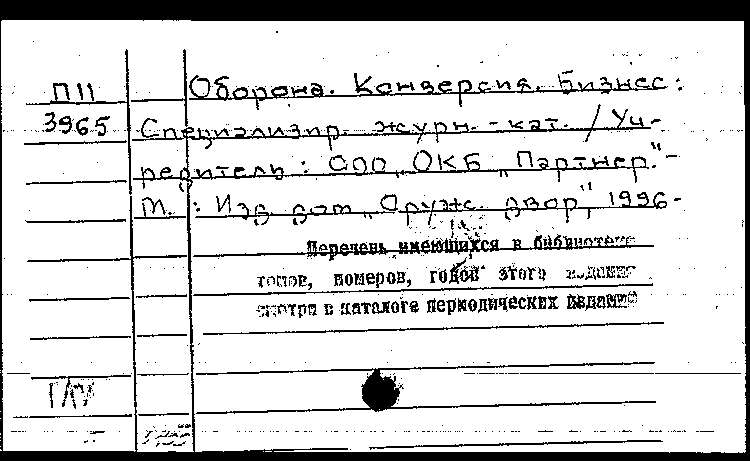 П11
3965
Оборона. Конверсия. Бизнес:
Специализир. журн. - кат. / Уч-
редитель: ООО „ОКБ „Партнер".-
М.: Изд. дом „Оруж. двор", 1996-
Перечень имеющихся в библиотеке
томов, номеров, годов этого издания
смотри в каталоге периодических изданий